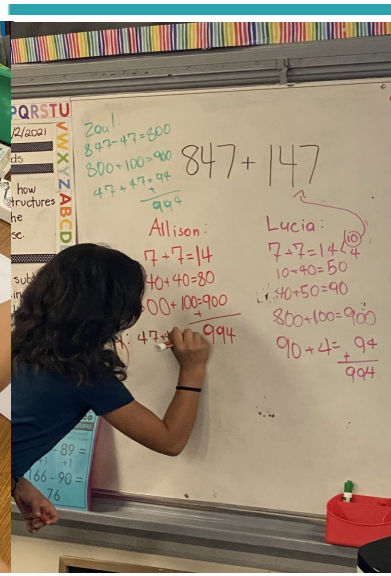 PQRSTU
VWXYZABCD
/2/2021
ds
how
tructures
he
se.
847+147
Zaul:
847-47=800
800+100=900
47+47=94
994
Allison:
7+7=14
40+40=80
800+100=900
+
994
: 47+
Lucia:
7+7=14
10
4
10+40=50
40+50=90
800+100=900
90+4= 94
+
994
-89=
+1
166-90=
76